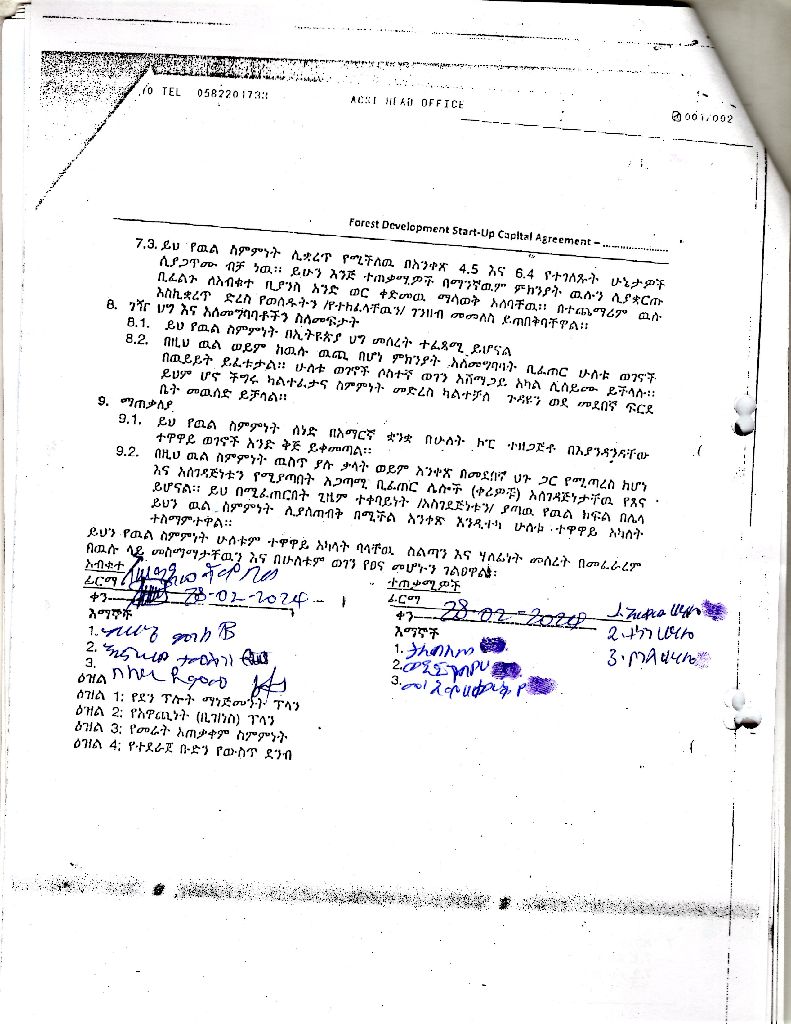 TEL 0582201733 ACSI HEAD OFFICE 001/002
Forest Development Start-Up Capital Agreement – ......................
7.3. ይህ የዉል ስምምነት ሊቋረጥ የሚችለዉ በአንቀጽ 4.5 እና 6.4 የተገለጹት ሁኔታዎች
ሲያጋጥሙ ብቻ ነዉ። ይሁን እንጅ ተጠቃሚዎች በማንኛዉም ምክንያት ዉሉን ሊያቋርጡ
ቢፈልጉ ለአብቁተ ቢያንስ አንድ ወር ቀድመዉ ማሳወቅ አለባቸዉ። በተጨማሪም ዉሉ
እስኪቋረጥ ድረስ የወሰዱትን /የተከፈላቸዉን/ ገንዘብ መመለስ ይጠበቅባቸዋል።
8. ገዥ ህግ እና አለመግባባቶችን ስለመፍታት
8.1. ይህ የዉል ስምምነት በኢትዮጵያ ህግ መሰረት ተፈጻሚ ይሆናል
8.2. በዚህ ዉል ወይም ከዉሉ ዉጪ በሆነ ምክንያት አለመግባባት ቢፈጠር ሁለቱ ወገኖች
በዉይይት ይፈቱታል። ሁለቱ ወገኖች ሶስተኛ ወገን አሸማጋይ አካል ሊሰይሙ ይችላሉ።
ይህም ሆኖ ችግሩ ካልተፈታና ስምምነት መድረስ ካልተቻለ ጉዳዩን ወደ መደበኛ ፍርድ
ቤት መዉሰድ ይቻላል።
9. ማጠቃለያ
9.1. ይህ የዉል ስምምነት ሰነድ በአማርኛ ቋንቋ በሁለት ኮፒ ተዘጋጅቶ በእያንዳንዳቸው
ተዋዋይ ወገኖች አንድ ቅጅ ይቀመጣል።
9.2. በዚህ ዉል ስምምነት ዉስጥ ያሉ ቃላት ወይም አንቀጽ በመደበኛ ህጉ ጋር የሚጣረስ ከሆነ
እና አስገዳጅነቱን የሚያጣበት አጋጣሚ ቢፈጠር ሌሎች (ቀሪዎች) አስገዳጅነታቸዉ የጸና
ይሆናል። ይህ በሚፈጠርበት ጊዜም ተቀባይነት /አስገዳጅነቱን/ ያጣዉ የዉል ክፍል በሌላ
ይህን ዉል ስምምነት ሊያለጠብቅ በሚችል አንቀጽ እንዲተካ ሁለቱ ተዋዋይ አካላት
ተስማምተዋል።
ይህን የዉል ስምምነት ሁለቱም ተዋዋይ አካላት ባላቸዉ ስልጣን እና ሃላፊነት መሰረት በመፈራረም
በዉሉ ላይ መስማማታቸዉን እና በሁለቱም ወገን የፀና መሆኑን ገልፀዋል፡
አብቁተ
ፊርማ
ቀን 28-02-2024
እማኞች
1.
2.
3.
ተጠቃሚዎች
ፊርማ
ቀን 28-02-2024
እማኞች
1.
2.
3.
1.
2.
3.
ዕዝል
ዕዝል 1: የደን ፕሎት ማኔጅመንት ፕላን
ዕዝል 2: የአዋጪነት (ቢዝነስ) ፕላን
ዕዝል 3: የመሬት አጠቃቀም ስምምነት
ዕዝል 4: የተደራጀ ቡድን የውስጥ ደንብ